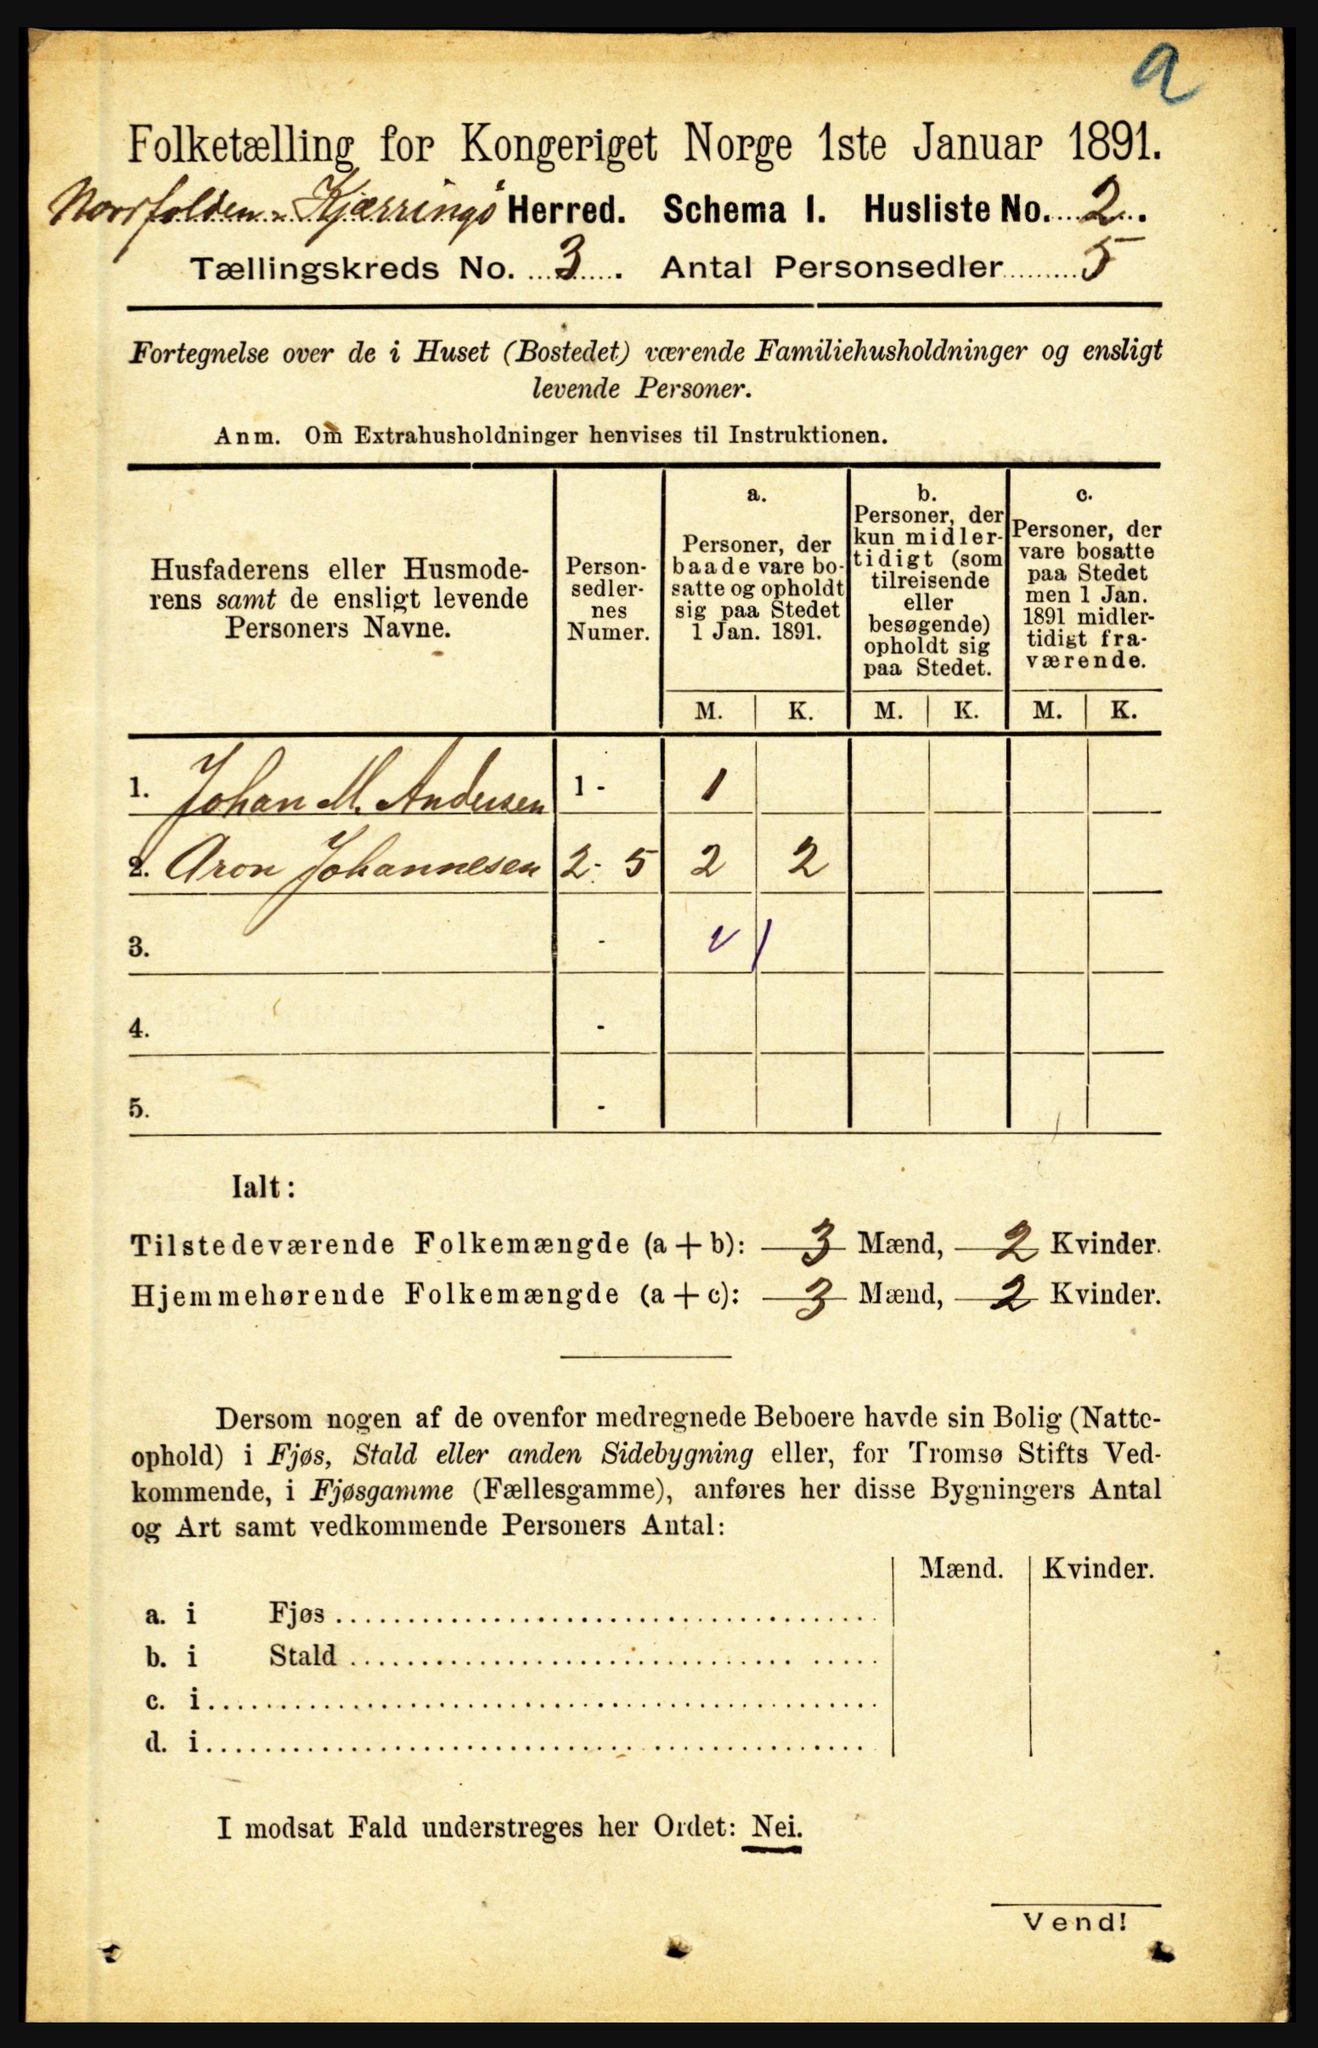 a
Folketælling for Kongeriget Norge 1ste Januar 1891.
Norrfolden - Kjærringø Herred. Schema I. Husliste No. 2.
Tællingskreds No. 3. Antal Personsedler 5
Fortegnelse over de i Huset (Bostedet) værende Familiehusholdninger og ensligt
levende Personer.
Anm. Om Extrahusholdninger henvises til Instruktionen.
Husfaderens eller Husmode-
rens samt de ensligt levende
Personers Navne.
Person-
sedler-
nes
Numer.
a.
Personer, der
baade vare bo-
satte og opholdt
sig paa Stedet
1 Jan. 1891.
b.
Personer, der
kun midler-
tidigt (som
tilreisende
eller
besøgende)
opholdt sig
paa Stedet.
c.
Personer, der
vare bosatte
paa Stedet
men 1 Jan.
1891 midler-
tidigt fra-
værende.
M. K. M. K. M. K.
1. Johan M. Andersen 1 - 1
2. Aron Johannesen 2 - 5 2 2
3. -
4. -
5. -
Ialt:
Tilstedeværende Folkemængde (a + b): 3 Mænd, 2 Kvinder.
Hjemmehørende Folkemængde (a + c): 3 Mænd, 2 Kvinder.
Dersom nogen af de ovenfor medregnede Beboere havde sin Bolig (Natte-
ophold) i Fjøs, Stald eller anden Sidebygning eller, for Tromsø Stifts Ved-
kommende, i Fjøsgamme (Fællesgamme), anføres her disse Bygningers Antal
og Art samt vedkommende Personers Antal:
Mænd. Kvinder.
a. i Fjøs
b. i Stald
c. i
d. i
I modsat Fald understreges her Ordet: Nei.
Vend!